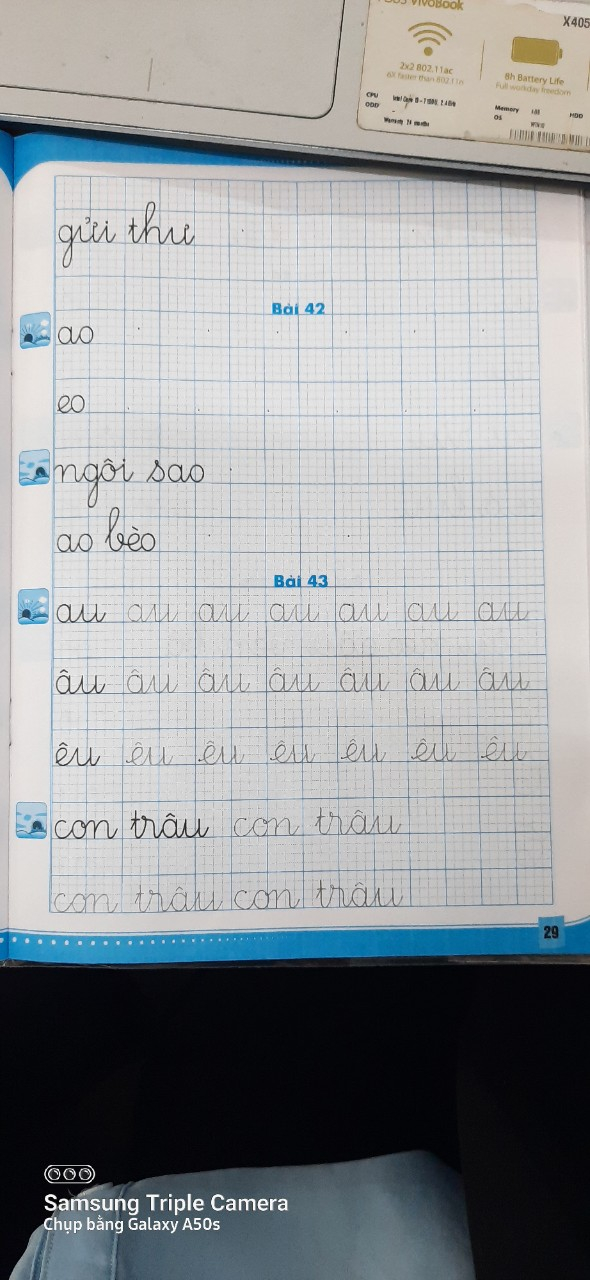 VivoBook
X405
2x2 802.11ac
6X faster than 802.11n
8h Battery Life
Full workday freedom
CPU
ODD
Memory
OS
HDD
Warranty 24 months
gửi thư
Bài 42
ao
eo
ngôi sao
ao bèo
Bài 43
au au au au au au au
âu âu âu âu âu âu âu
êu êu êu êu êu êu êu
con trâu con trâu
con trâu con trâu
29
Samsung Triple Camera
Chụp bằng Galaxy A50s